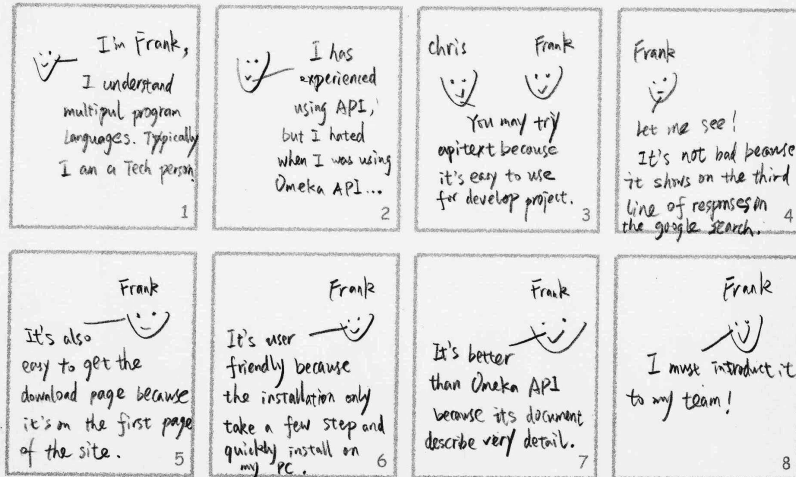 I'm Frank,
I understand
multipul program
languages. Typically
I am a Tech person
1
I has
experienced
using API,
but I hated
when I was using
Omeka API...
2
chris Frank
You may try
apitext because
it's easy to use
for develop project.
3
Frank
Let me see!
It's not bad because
it shows on the third
line of responses on
the google search.
4
Frank
It's also
easy to get the
download page because
it's on the first page
of the site.
5
Frank
It's user
friendly because
the installation only
take a few step and
quickly install on
my PC.
6
Frank
It's better
than Omeka API
because its document
describe very detail.
7
Frank
I must introduct it
to my team!
8